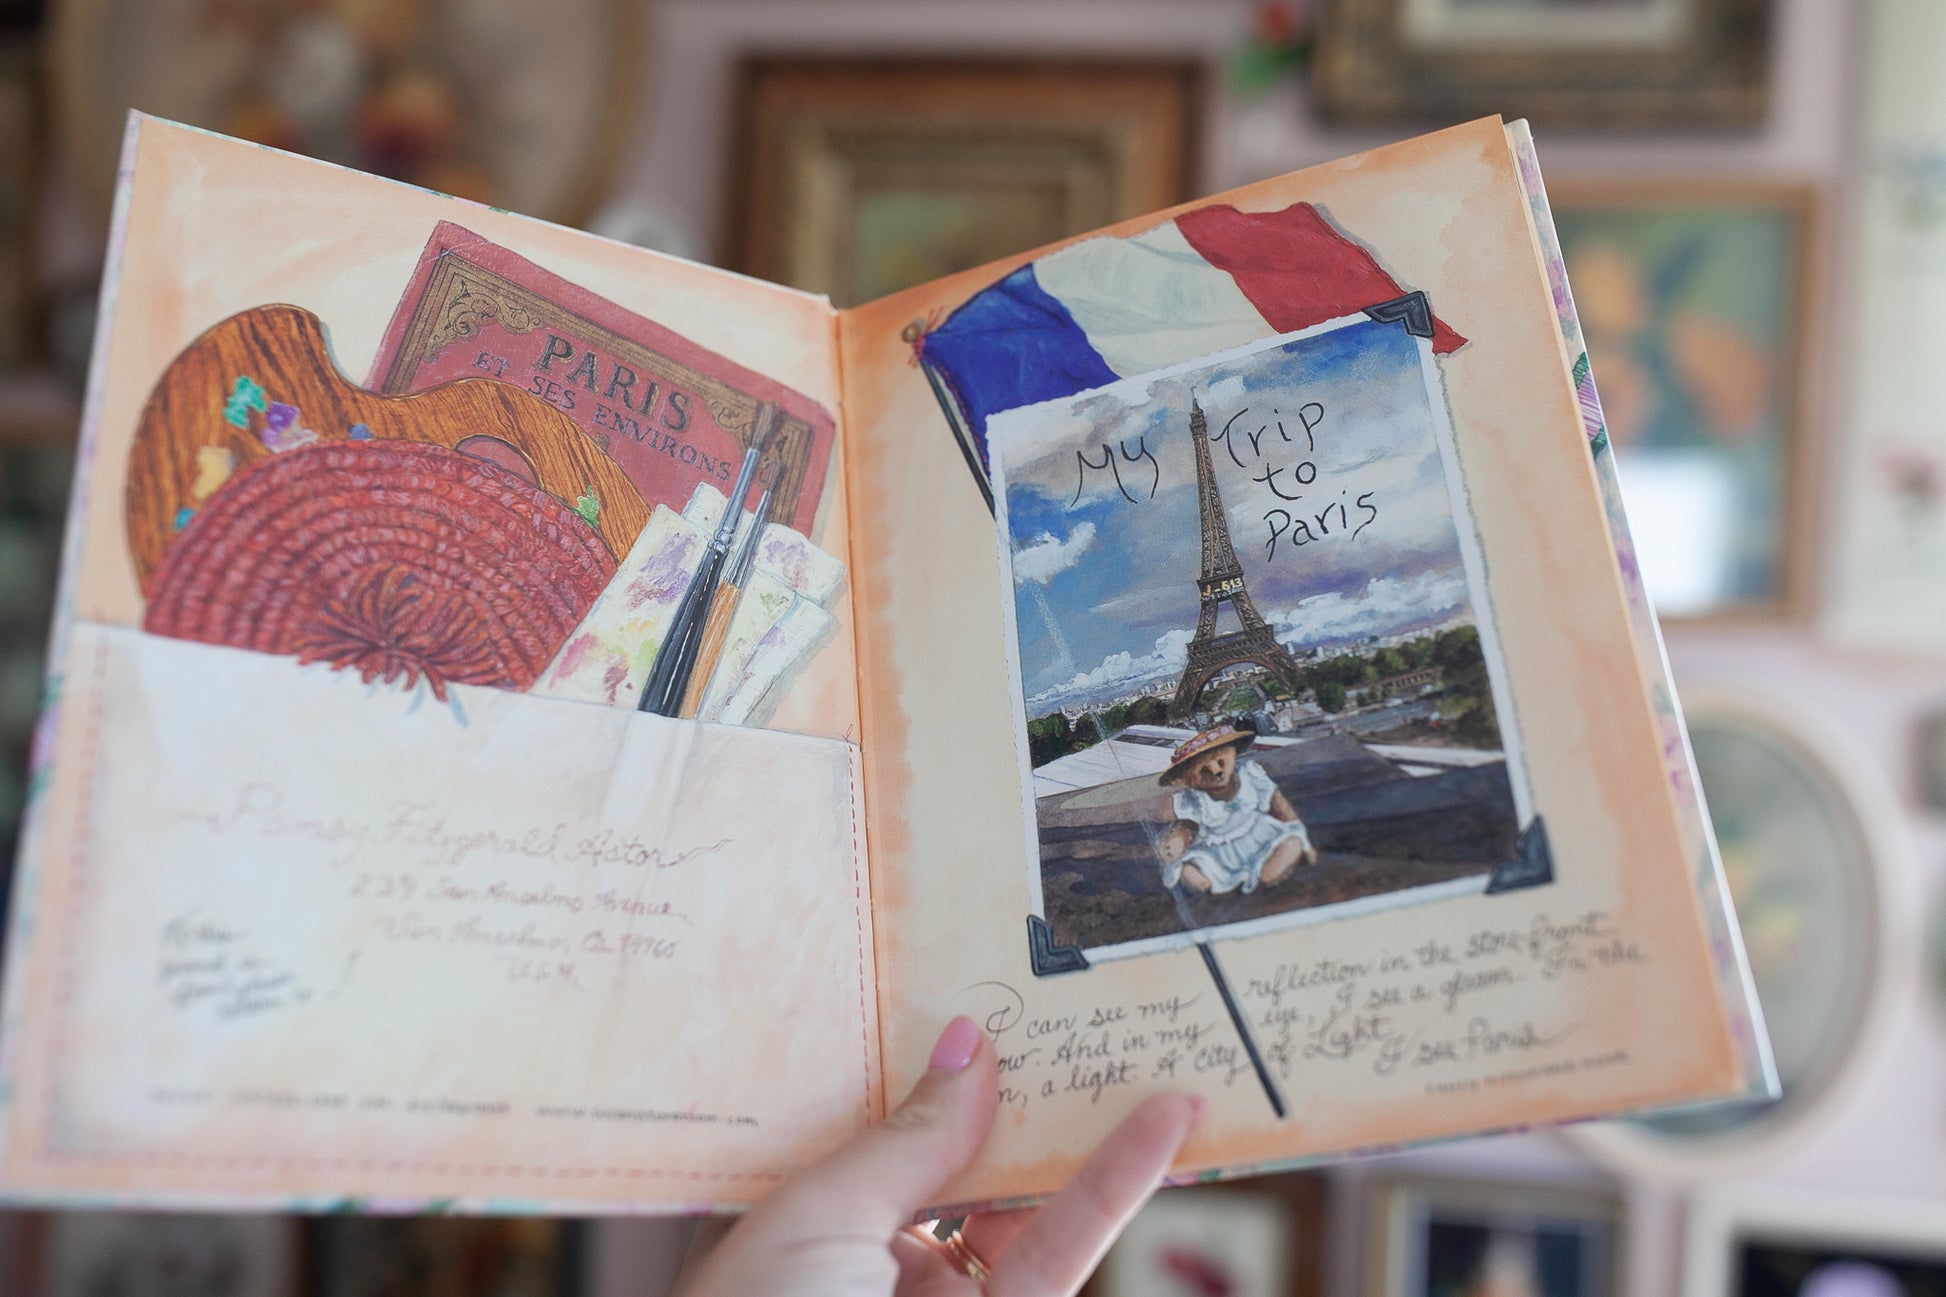 PARIS
ET SES ENVIRONS
Pansy Fitzgerald Astor
239 San Anselmo Avenue
San Anselmo, Ca 94960
U.S.A.
My Trip
to
Paris
J-513
I can see my reflection in the store front
ow. And in my eye, I see a gleam. In the
n, a light. A City of Light.
I see Paris